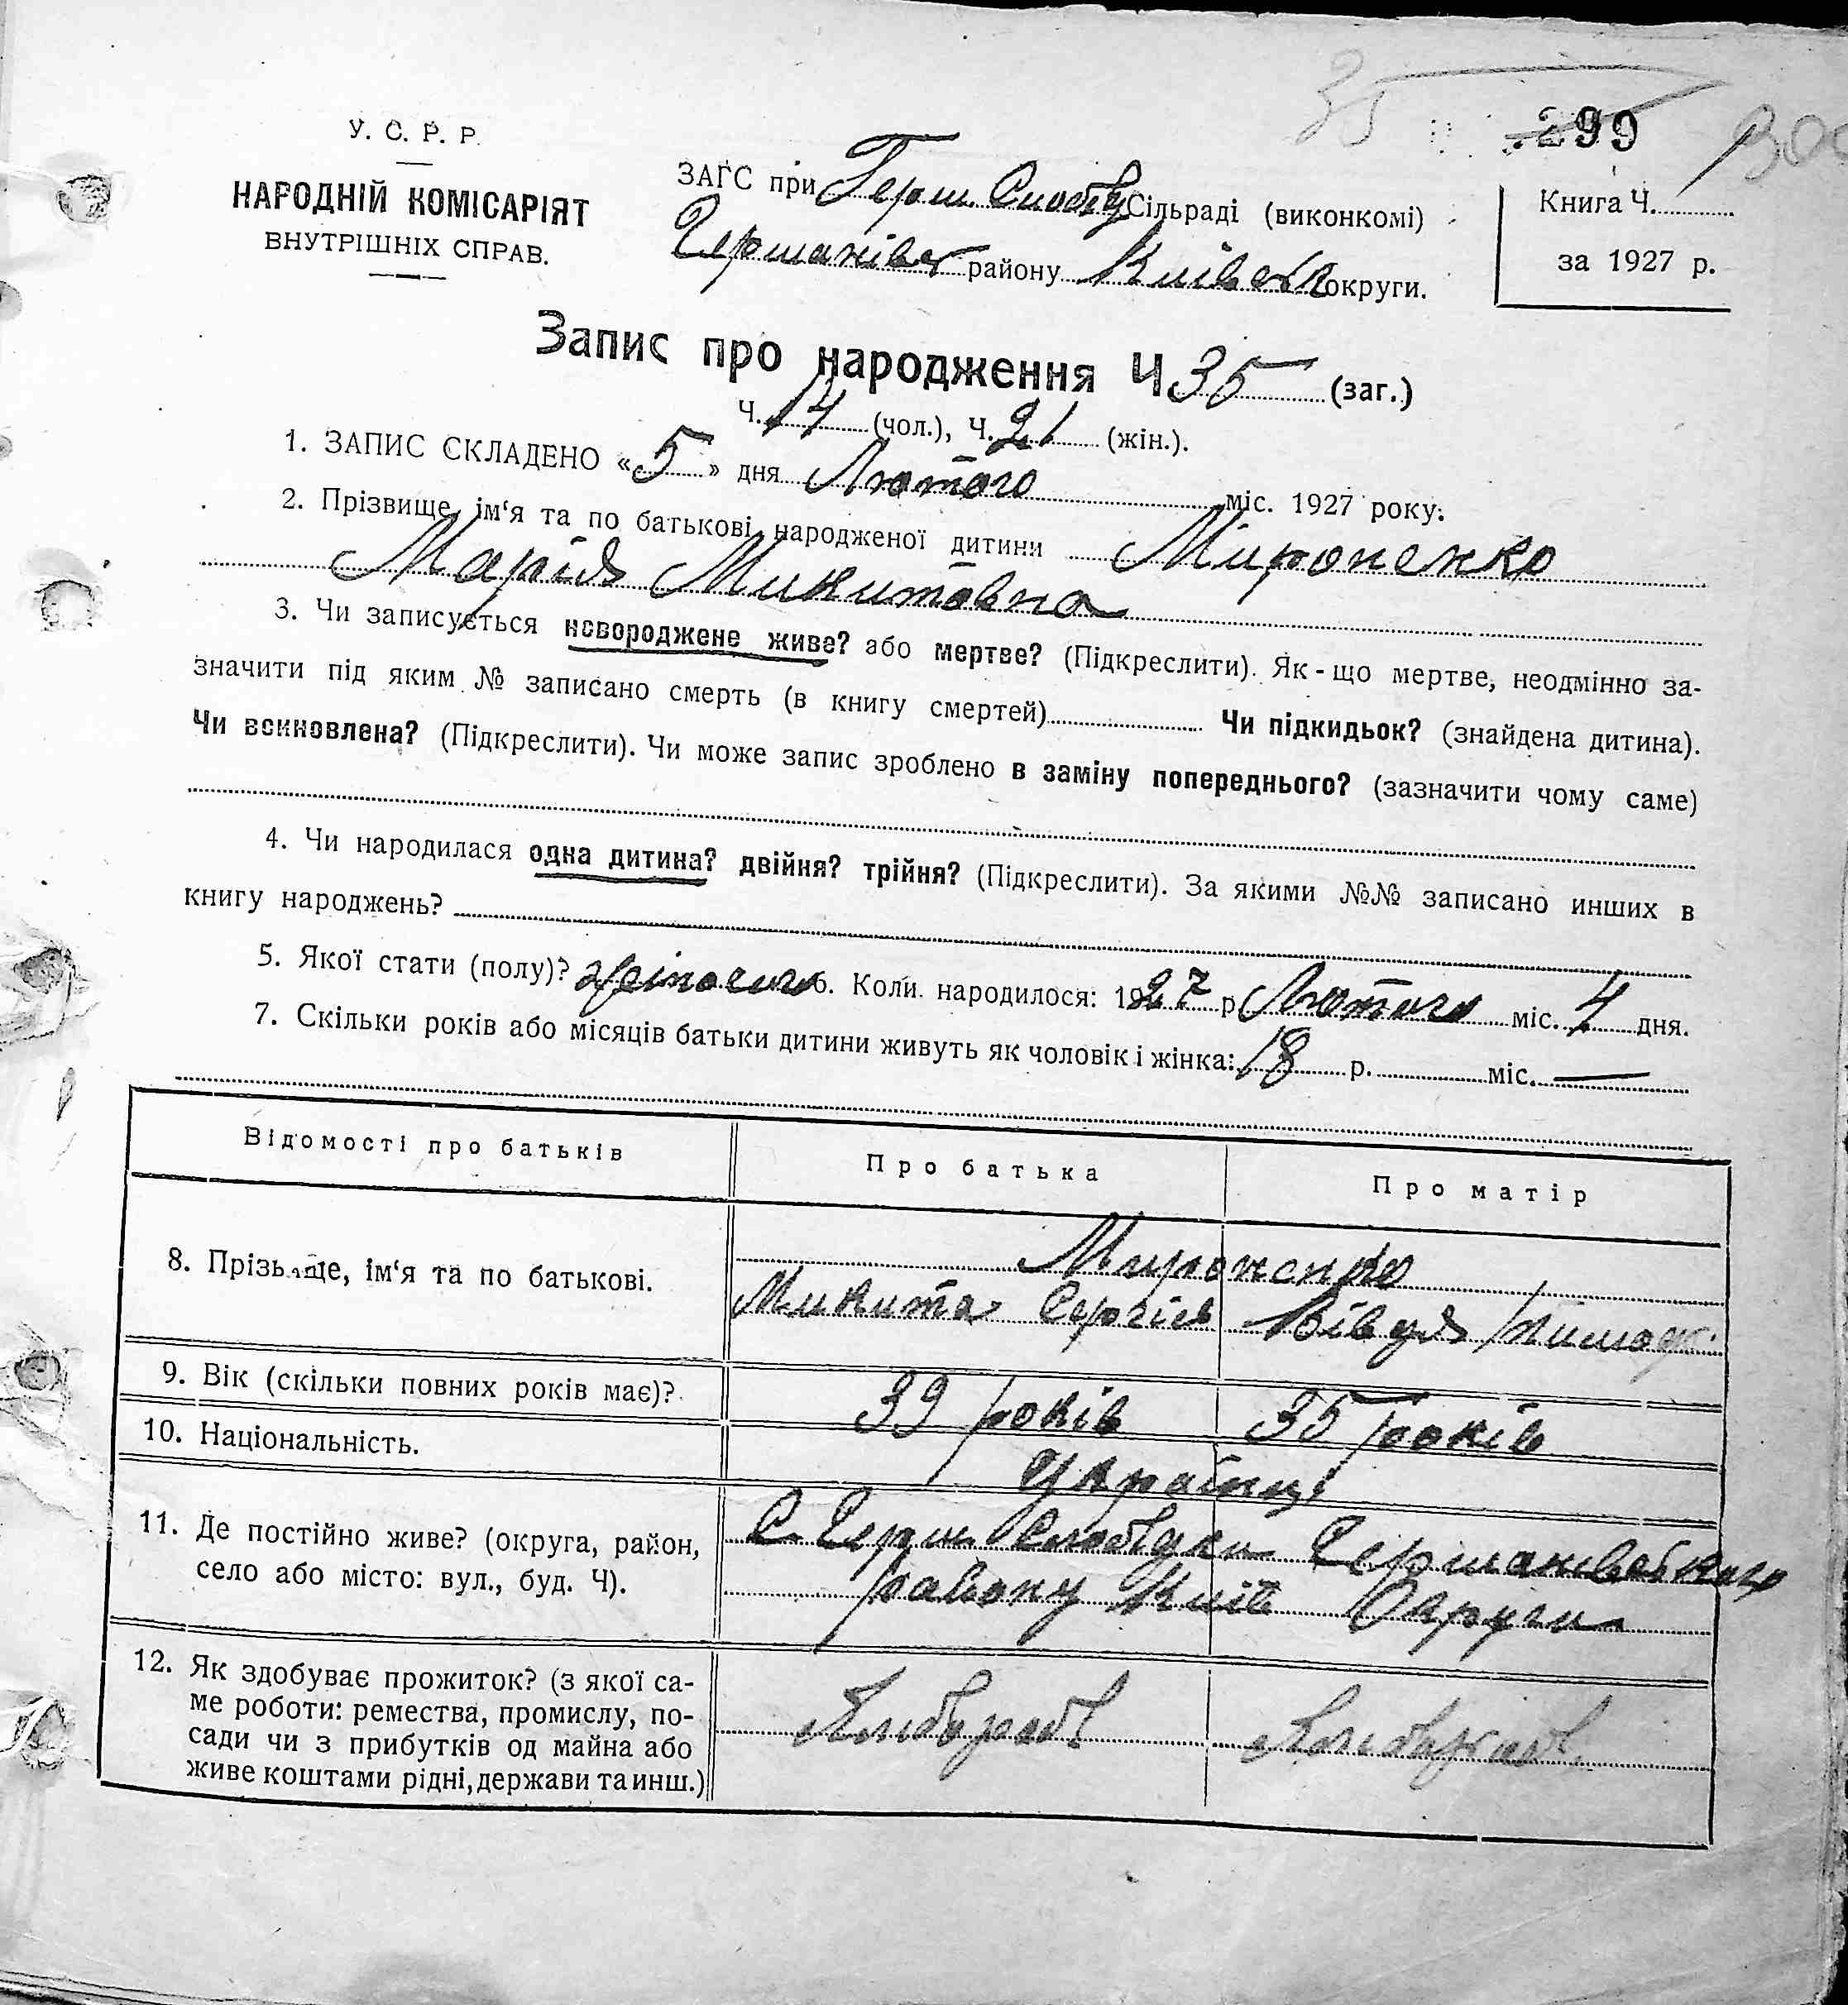 35
299
300
У. С. Р. Р.
НАРОДНІЙ КОМІСАРІЯТ
ВНУТРІШНІХ СПРАВ.
ЗАГС при Герм. Слобід Сільраді (виконкомі)
Германівс району Київськ округи.
Книга Ч.
за 1927 р.
Запис про народження Ч. 35 (заг.)
Ч. 14 (чол.), Ч. 21 (жін.).
1. ЗАПИС СКЛАДЕНО «5» дня Лютого міс. 1927 року.
2. Прізвище, ім‘я та по батькові народженої дитини Мироненко
Марія Микитовна
3. Чи записується новороджене живе? або мертве? (Підкреслити). Як-що мертве, неодмінно за-
значити під яким № записано смерть (в книгу смертей) Чи підкидьок? (знайдена дитина).
Чи всиновлена? (Підкреслити). Чи може запис зроблено в заміну попереднього? (зазначити чому саме)
4. Чи народилася одна дитина? двійня? трійня? (Підкреслити). За якими №№ записано инших в
книгу народжень?
5. Якої стати (полу)? жіночого 6. Коли народилося: 1927 р Лютого міс. 4 дня.
7. Скільки років або місяців батьки дитини живуть як чоловік і жінка: 18 р. міс. —
Відомості про батьків Про батька Про матір
8. Прізвище, ім‘я та по батькові.
Мироненко
Микита Сергієв Вівдя
9. Вік (скільки повних років має)? 39 років 35 років
10. Національність. Українці
11. Де постійно живе? (округа, район,
село або місто: вул., буд. Ч).
С. Герм. Слобідки Германівського
району Київ Округи
12. Як здобуває прожиток? (з якої са-
ме роботи: ремества, промислу, по-
сади чи з прибутків од майна або
живе коштами рідні, держави та инш.)
Хлібороб